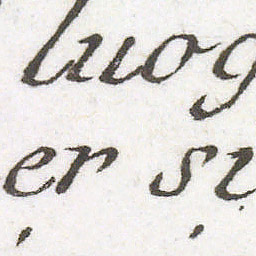 luog
er si